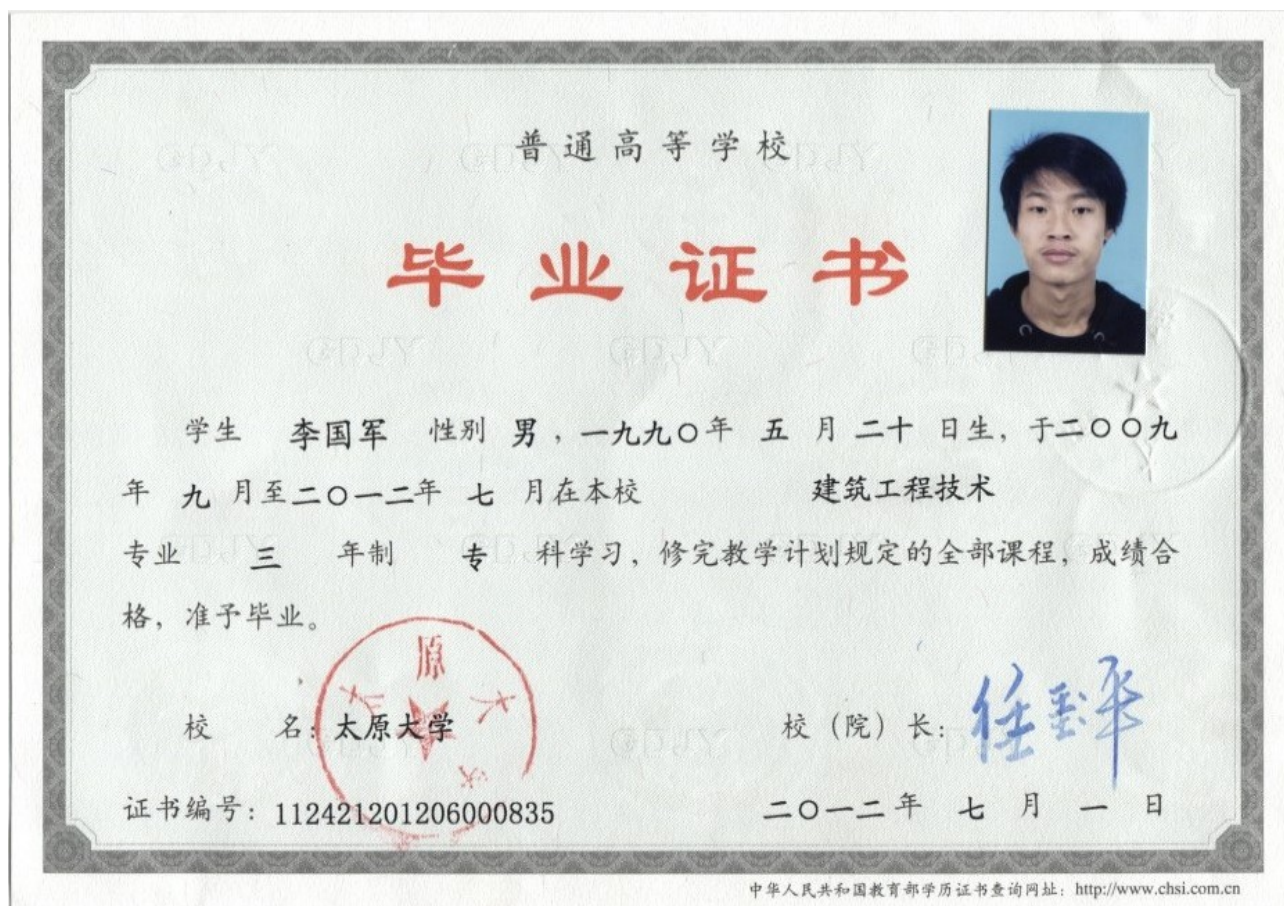 普通高等学校
毕业证书
学生 李国军 性别 男，一九九〇年 五 月 二十 日生，于二〇〇九
年 九 月至二〇一二年 七 月在本校 建筑工程技术
专业 三 年制 专 科学习，修完教学计划规定的全部课程，成绩合
格，准予毕业。
校 名：太原大学 校（院）长：
证书编号：112421201206000835 二〇一二年 七 月 一 日
中华人民共和国教育部学历证书查询网址：http://www.chsi.com.cn